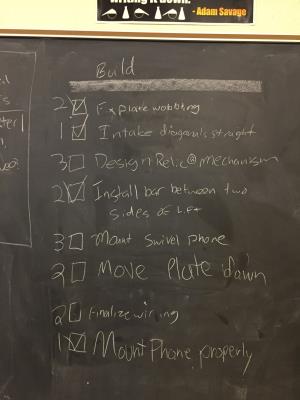 writing it down.
- Adam Savage
Build
2 ☑ Fix plate wobbling
1 ☑ Intake diagonals straight
3 ☐ Design Relic @ mechanism
2 ☑ Install bar between two
sides of Lift
3 ☐ Mount Swivel phone
2 ☐ Move Plate down
2 ☐ Finalize wiring
1 ☑ Mount Phone properly